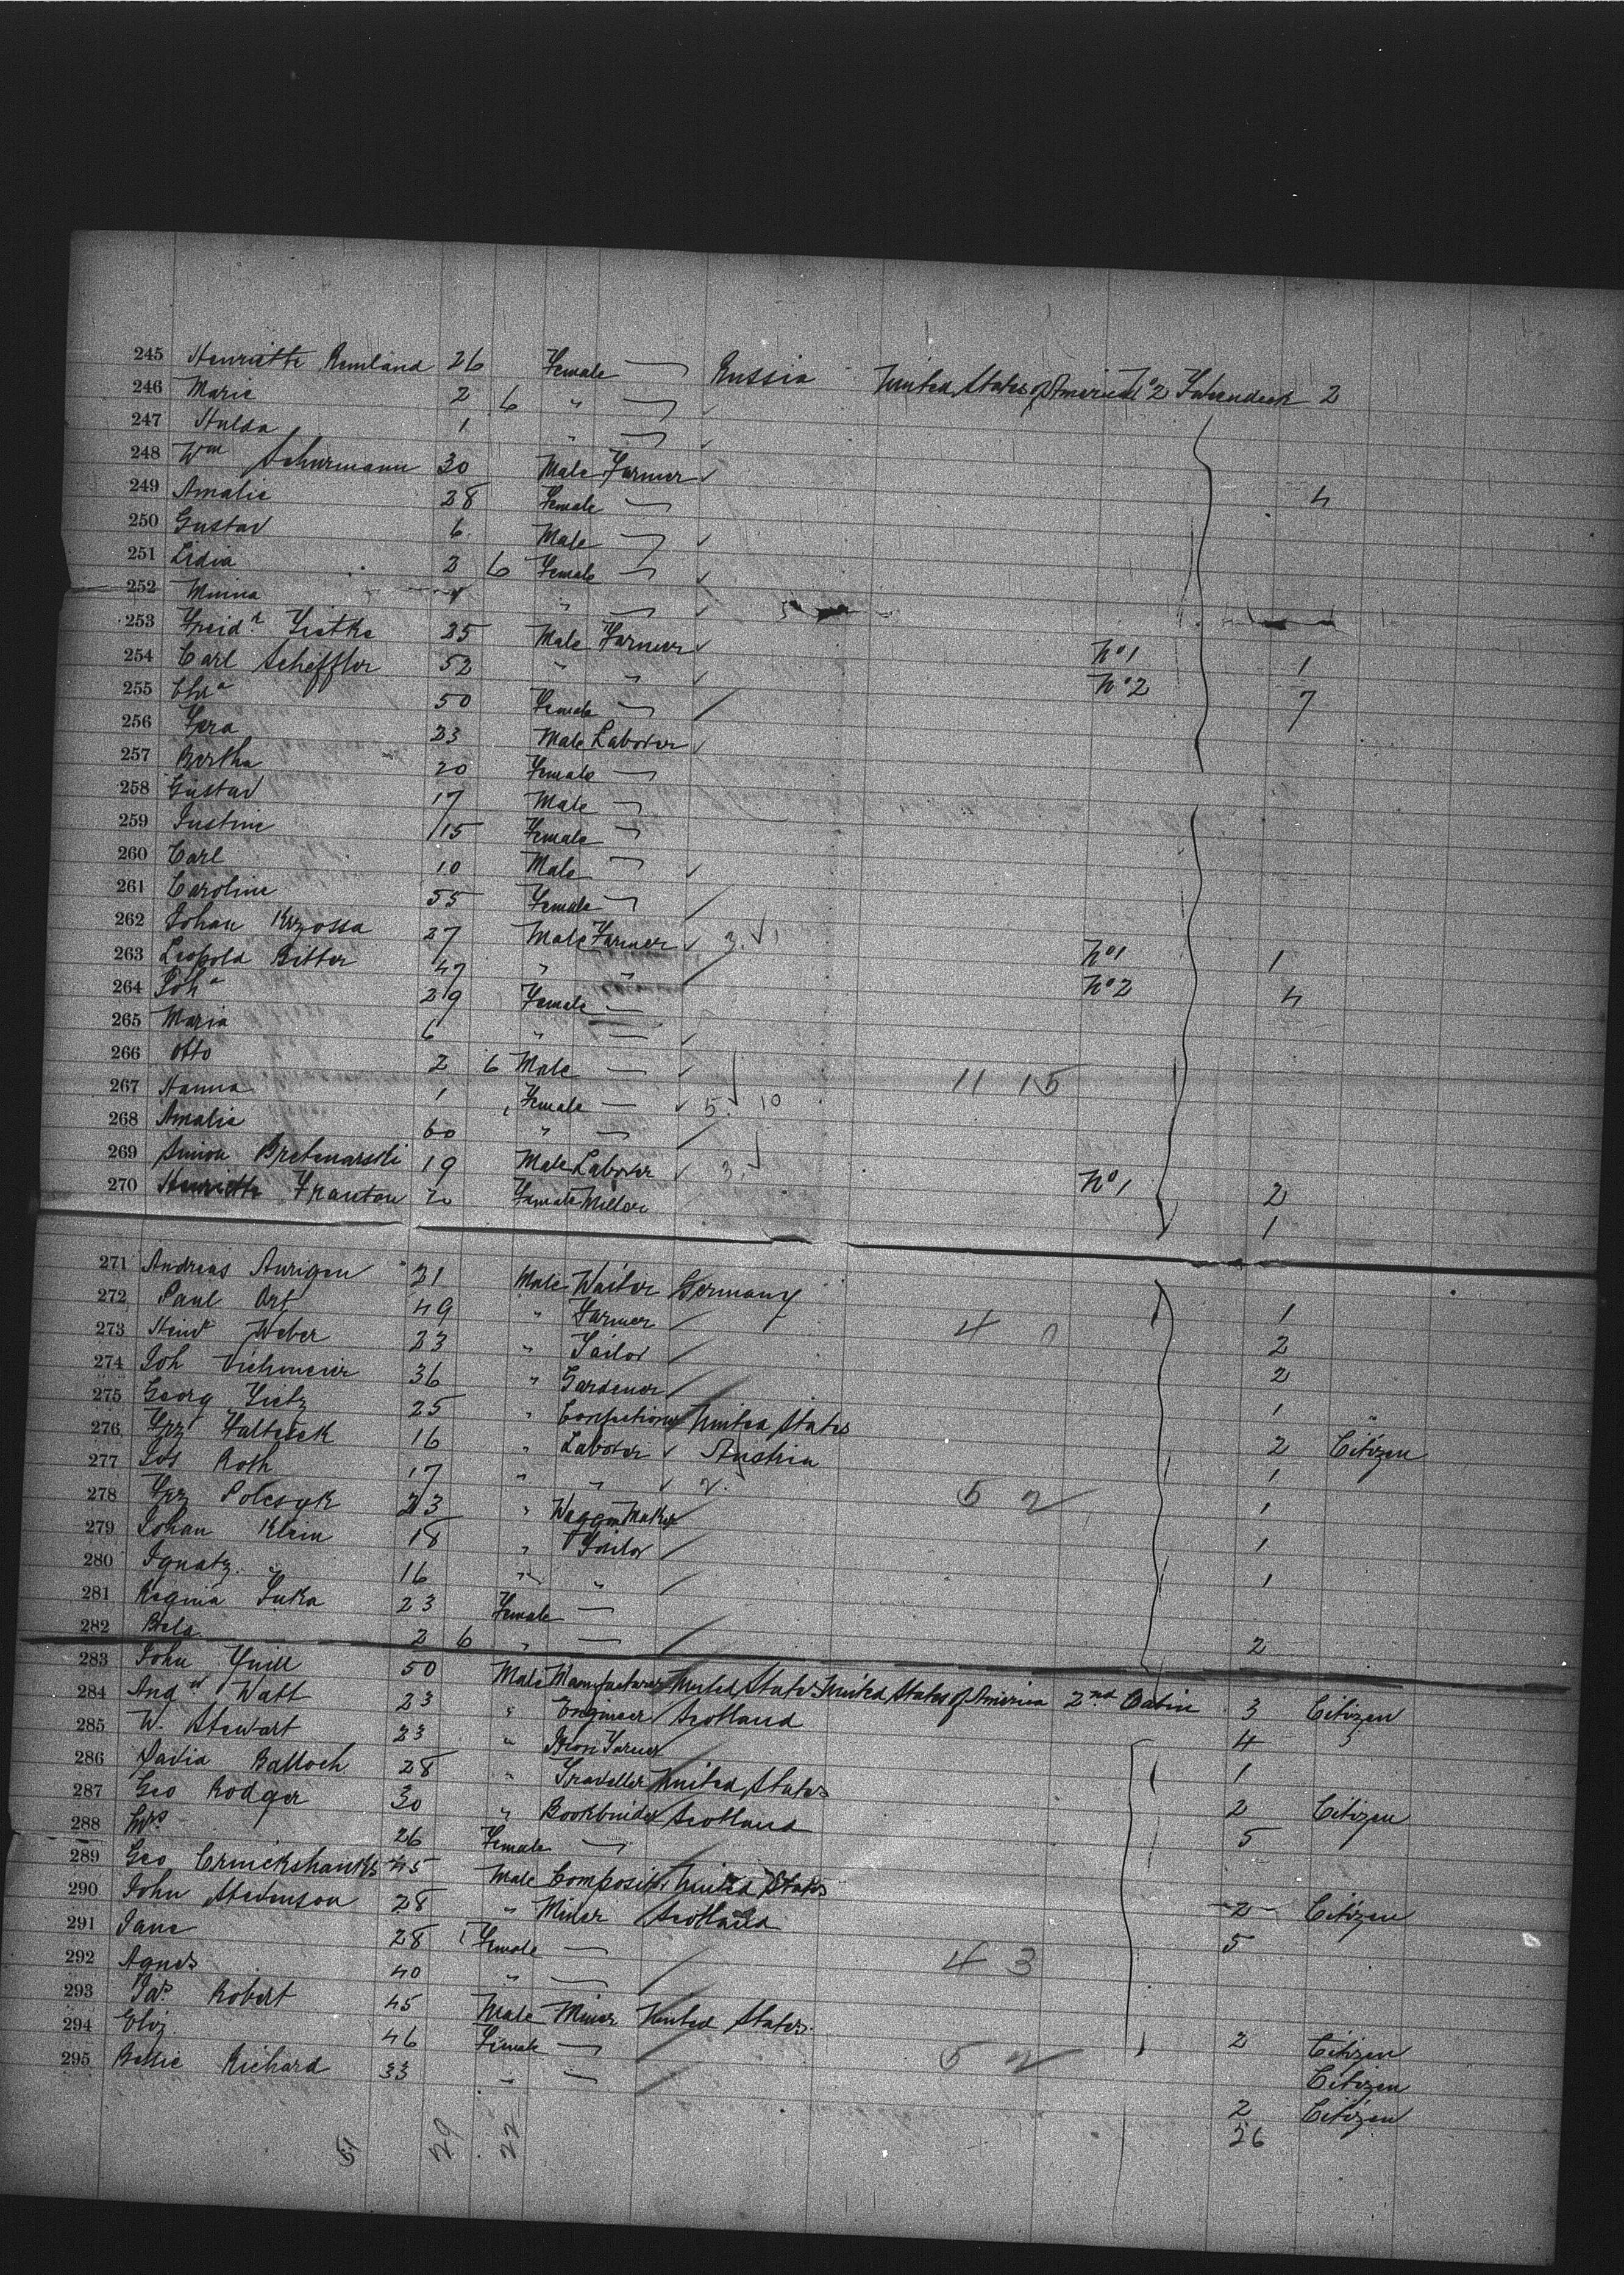 245 Henriette Remland 26 Female Russia United States of America No 2 Tweendeck 2
246 Marie 2 6 "
247 Hulda 1 "
248 Wm Schurmann 30 Male Farmer 4
249 Amalie 28 Female
250 Gustav 6 Male
251 Lidia 2 6 Female
252 Minna "
253 Freidr 25 Male Farmer No 1 1
254 Carl Scheffler 52 " " No 2 7
255 Chra 50 Female
256 23 Male Laborer
257 Bertha 20 Female
258 Gustav 17 Male
259 Justine 15 Female
260 Carl 10 Male
261 Caroline 55 Female
262 Johan Krzossa 27 Male Farmer 3 1 No 1 1
263 Leopold Bitter 47 " " No 2 4
264 Joha 29 Female
265 Maria 6 "
266 Otto 2 6 Male 11 15
267 Hanna 1 Female 5 10
268 Amalie 60 "
269 Simon 19 Male Laborer 3 No 1 2
270 Henriette Franton 20 Female 1
271 Andreas Aurigen 21 Male Waiter Germany 1
272 Paul Ort 49 " Farmer 4 0 2
273 Heinr Weber 23 " Tailor 2
274 Joh Viehmeier 36 " Gardener 1
275 Georg Lietz 25 " Confectioner United States 2 Citizen
276 16 " Laborer Austria 1
277 Jos Roth 17 " " 2 1
278 Polcsyk 23 " Waggon Maker 5 2 1
279 Johan Klein 18 " Tailor 1
280 Ignatz " 16 " "
281 Regina Juka 23 Female 2
282 Bela 2 6 "
283 John Yuill 50 Male Manufacturer United States United States of America 2nd Cabin 3 Citizen
284 Angus Watt 23 " Engineer Scotland 4
285 W. Stewart 23 " Iron Turner 1
286 David Balloch 28 " Traveller United States 2 Citizen
287 Geo Rodger 30 " Bookbinder Scotland 5
288 Mrs 26 Female
289 Geo Cruickshanks 45 Male Compositor United States 2 Citizen
290 John Stevenson 28 " Miner Scotland 5
291 Jane 28 Female
292 Agnes 40 " 4 3
293 Jas Robert 45 Male Miner United States 2 Citizen
294 Eliz 46 Female Citizen
295 Bessie Richard 33 " 5 2 2 Citizen
26
51 29 22